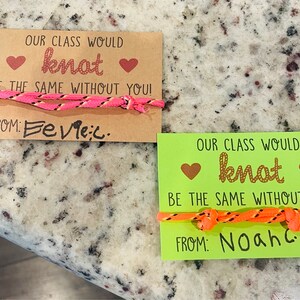 OUR CLASS WOULD
knot
E THE SAME WITHOUT YOU!
OM: Eevie.C.
OUR CLASS WOULD
knot
BE THE SAME WITHOUT
FROM: Noah C.